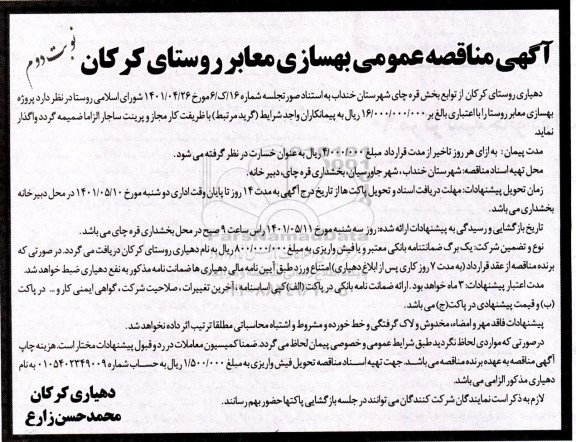 نوبت دوم
آگهی مناقصه عمومی بهسازی معابر روستای کرکان
دهیاری روستای کرکان از توابع بخش قره چای شهرستان خنداب به استناد صورتجلسه شماره ۱۶/ک/۶ مورخ ۱۴۰۱/۰۴/۲۶ شورای اسلامی روستا در نظر دارد پروژه
بهسازی معابر روستا را با اعتباری بالغ بر ۱۶/۰۰۰/۰۰۰/۰۰۰ ریال به پیمانکاران واجد شرایط (گرید مرتبط) با ظرفیت کار مجاز و پرینت ساجار الزاما ضمیمه گردد واگذار
نماید.
مدت پیمان: به ازای هر روز تاخیر از مدت قرارداد مبلغ ۴/۰۰۰/۰۰۰ ریال به عنوان خسارت در نظر گرفته می شود.
محل تهیه اسناد مناقصه: شهرستان خنداب، شهر جاورسیان، بخشداری قره چای، دبیر خانه.
زمان تحویل پیشنهادات: مهلت دریافت اسناد و تحویل پاکت ها از تاریخ درج آگهی به مدت ۱۴ روز تا پایان وقت اداری دو شنبه مورخ ۱۴۰۱/۰۵/۱۰ در محل دبیرخانه
بخشداری می باشد.
تاریخ بازگشایی و رسیدگی به پیشنهادات ارائه شده: روز سه شنبه مورخ ۱۴۰۱/۰۵/۱۱ راس ساعت ۹ صبح در محل بخشداری قره چای می باشد.
نوع و تضمین شرکت: یک برگ ضمانتنامه بانکی معتبر و یا فیش واریزی به مبلغ ۸۰۰/۰۰۰/۰۰۰ ریال به نام دهیاری روستای کرکان دریافت می گردد. در صورتی که
برنده مناقصه از عقد قرارداد (به مدت ۷ روز کاری پس از ابلاغ دهیاری) امتناع ورزد طبق آیین نامه مالی دهیاری ها ضمانت نامه مذکور به نفع دهیاری ضبط خواهد شد.
مدت اعتبار پیشنهادات: ۳ ماه خواهد بود. ارائه ضمانت نامه بانکی در پاکت (الف) کپی اساسنامه، آخرین تغییرات، صلاحیت شرکت، گواهی ایمنی کار و ... در پاکت
(ب) و قیمت پیشنهادی در پاکت (ج) می باشد.
پیشنهادات فاقد مهر و امضاء، مخدوش و لاک گرفتگی و خط خورده و مشروط و اشتباه محاسباتی مطلقا ترتیب اثر داده نخواهد شد.
در صورتی که مواردی لحاظ نگردید طبق شرایط عمومی و خصوصی پیمان لحاظ می گردد. ضمنا کمیسیون معاملات در رد و قبول پیشنهادات مختار است. هزینه چاپ
آگهی مناقصه به عهده برنده مناقصه می باشد. جهت تهیه اسناد مناقصه تحویل فیش واریزی به مبلغ ۱/۵۰۰/۰۰۰ ریال به حساب شماره ۰۱۰۵۴۰۲۳۴۹۰۰۹ به نام
دهیاری مذکور الزامی می باشد.
لازم به ذکر است نمایندگان شرکت کنندگان می توانند در جلسه بازگشایی پاکتها حضور بهم رسانند.
دهیاری کرکان
محمدحسن زارع